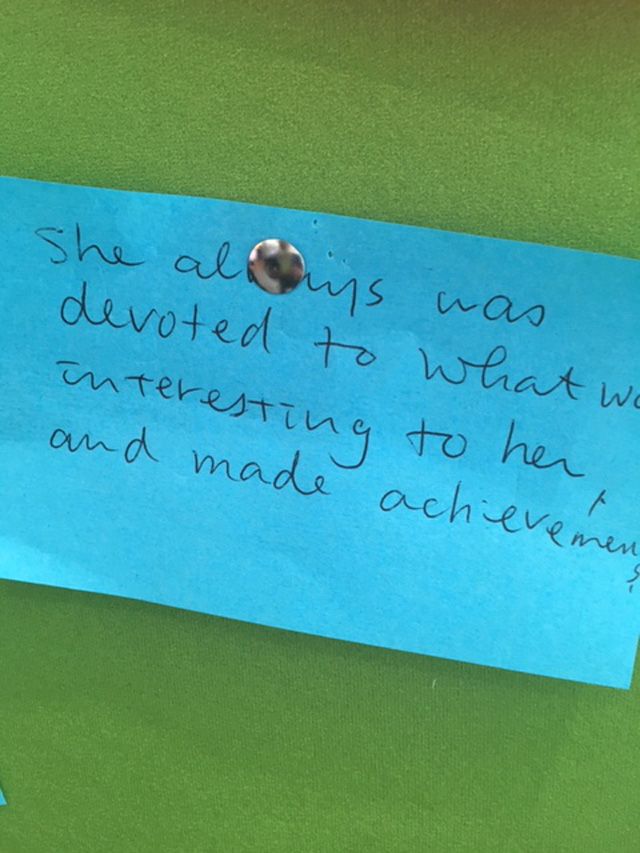 She always was
devoted to what wa
interesting to her,
and made achievemen
s